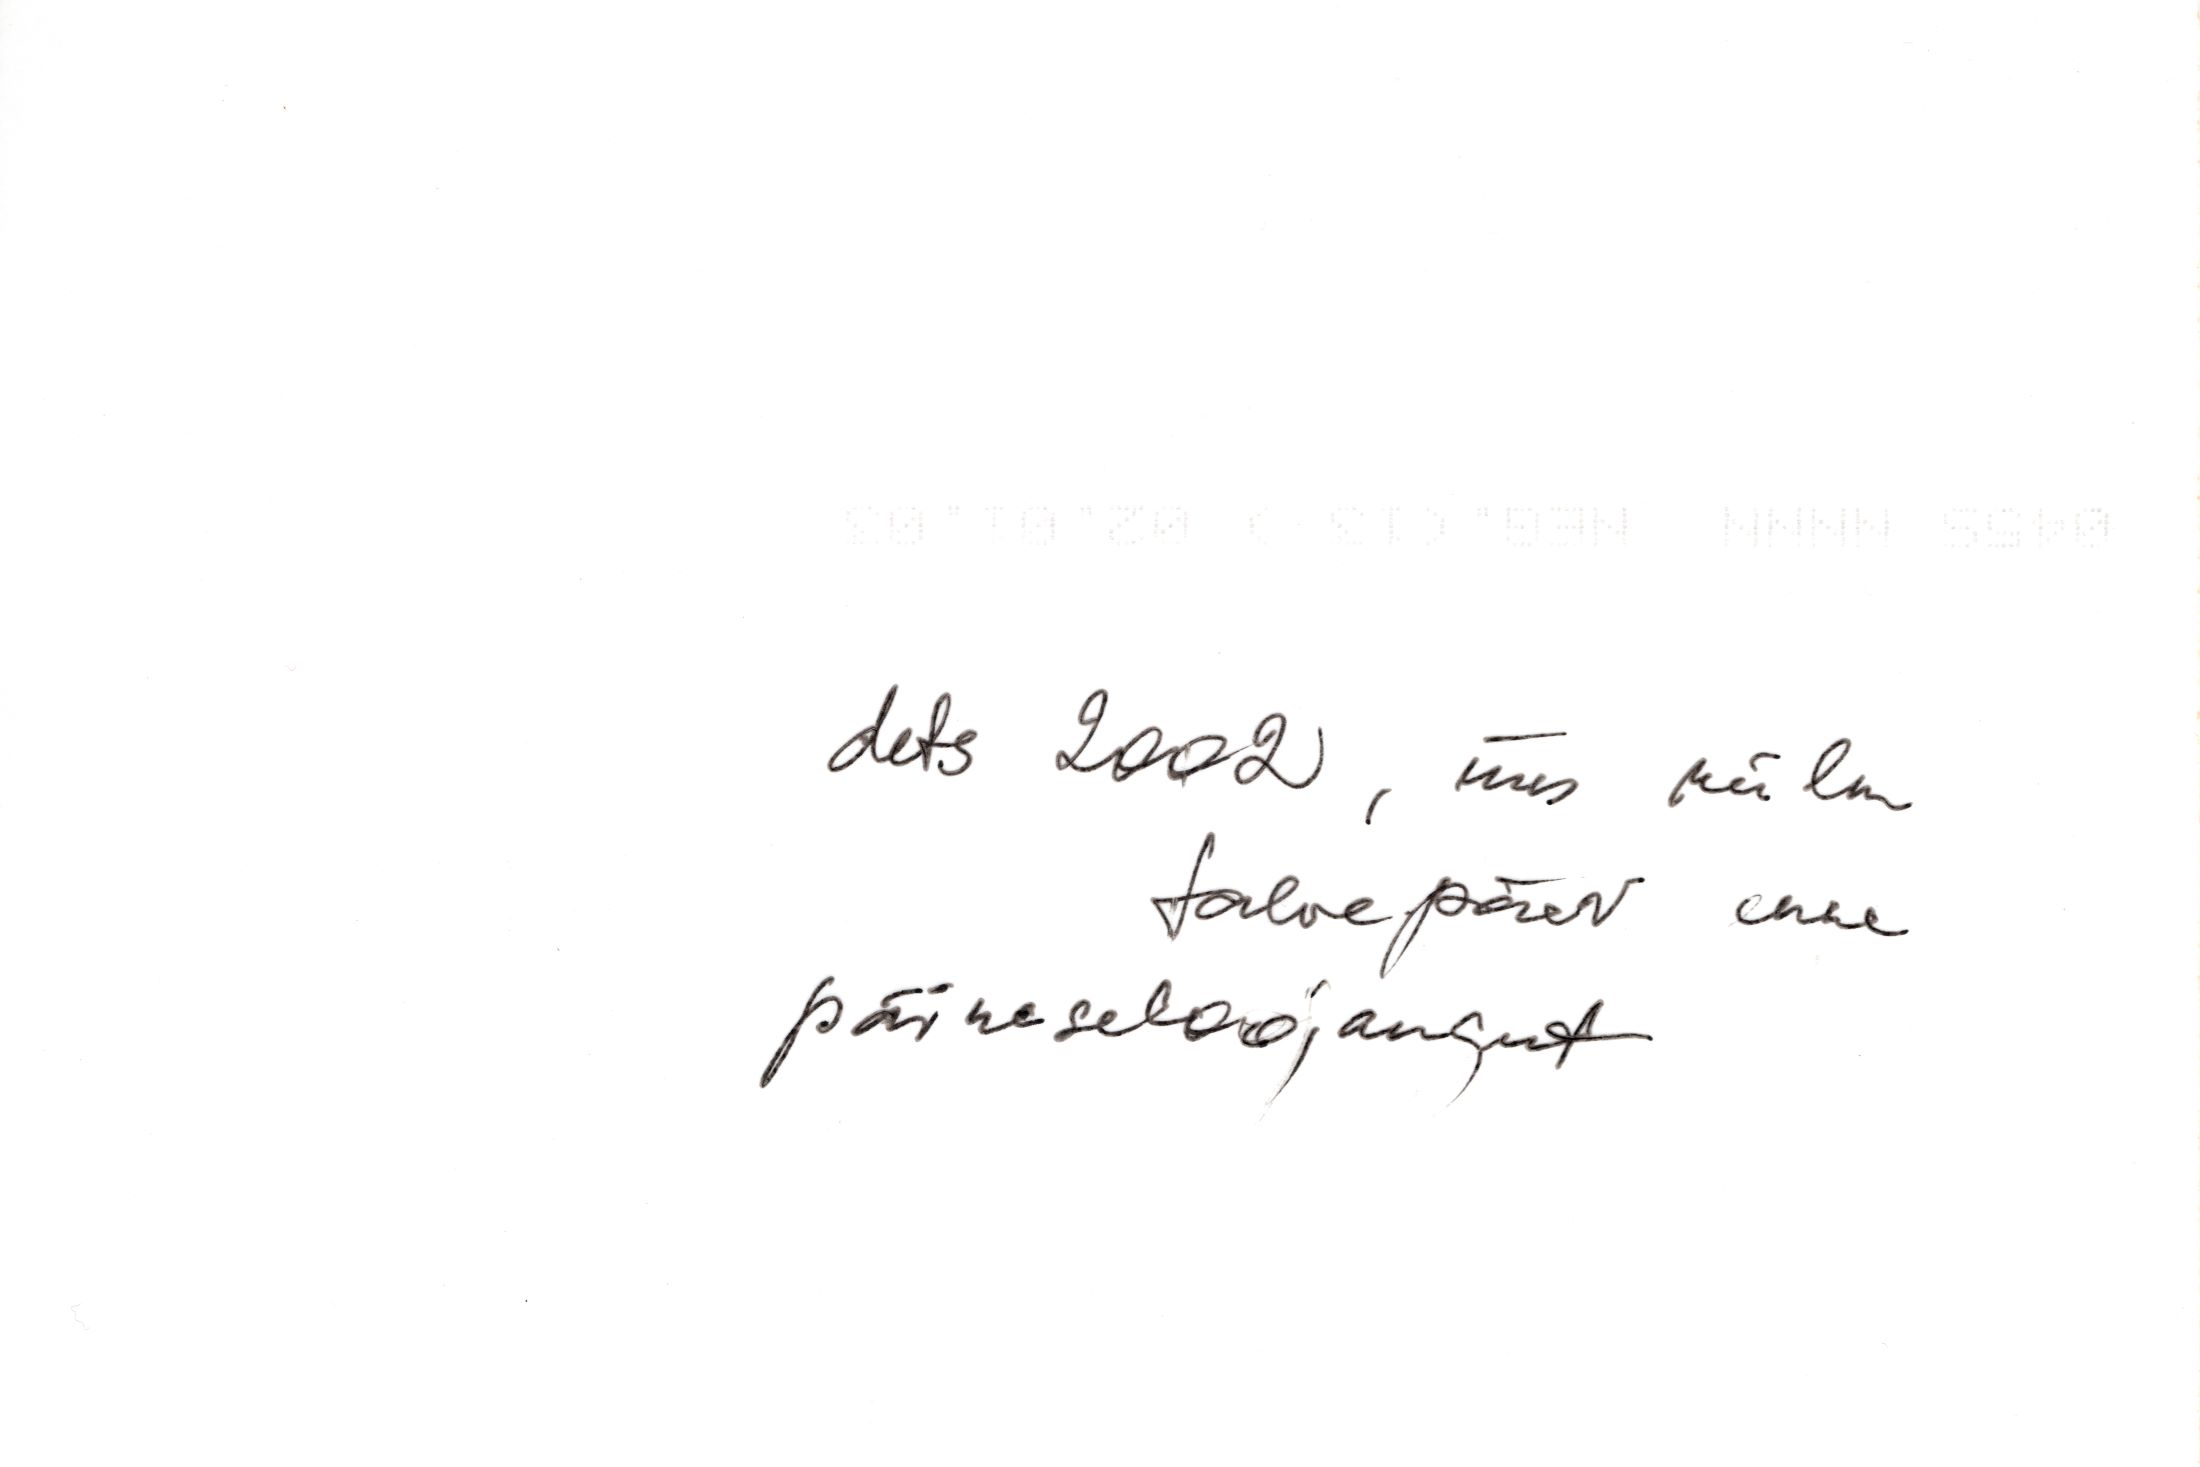 dets 2002, üks külm
talvepäev enne
päikeseloojangut